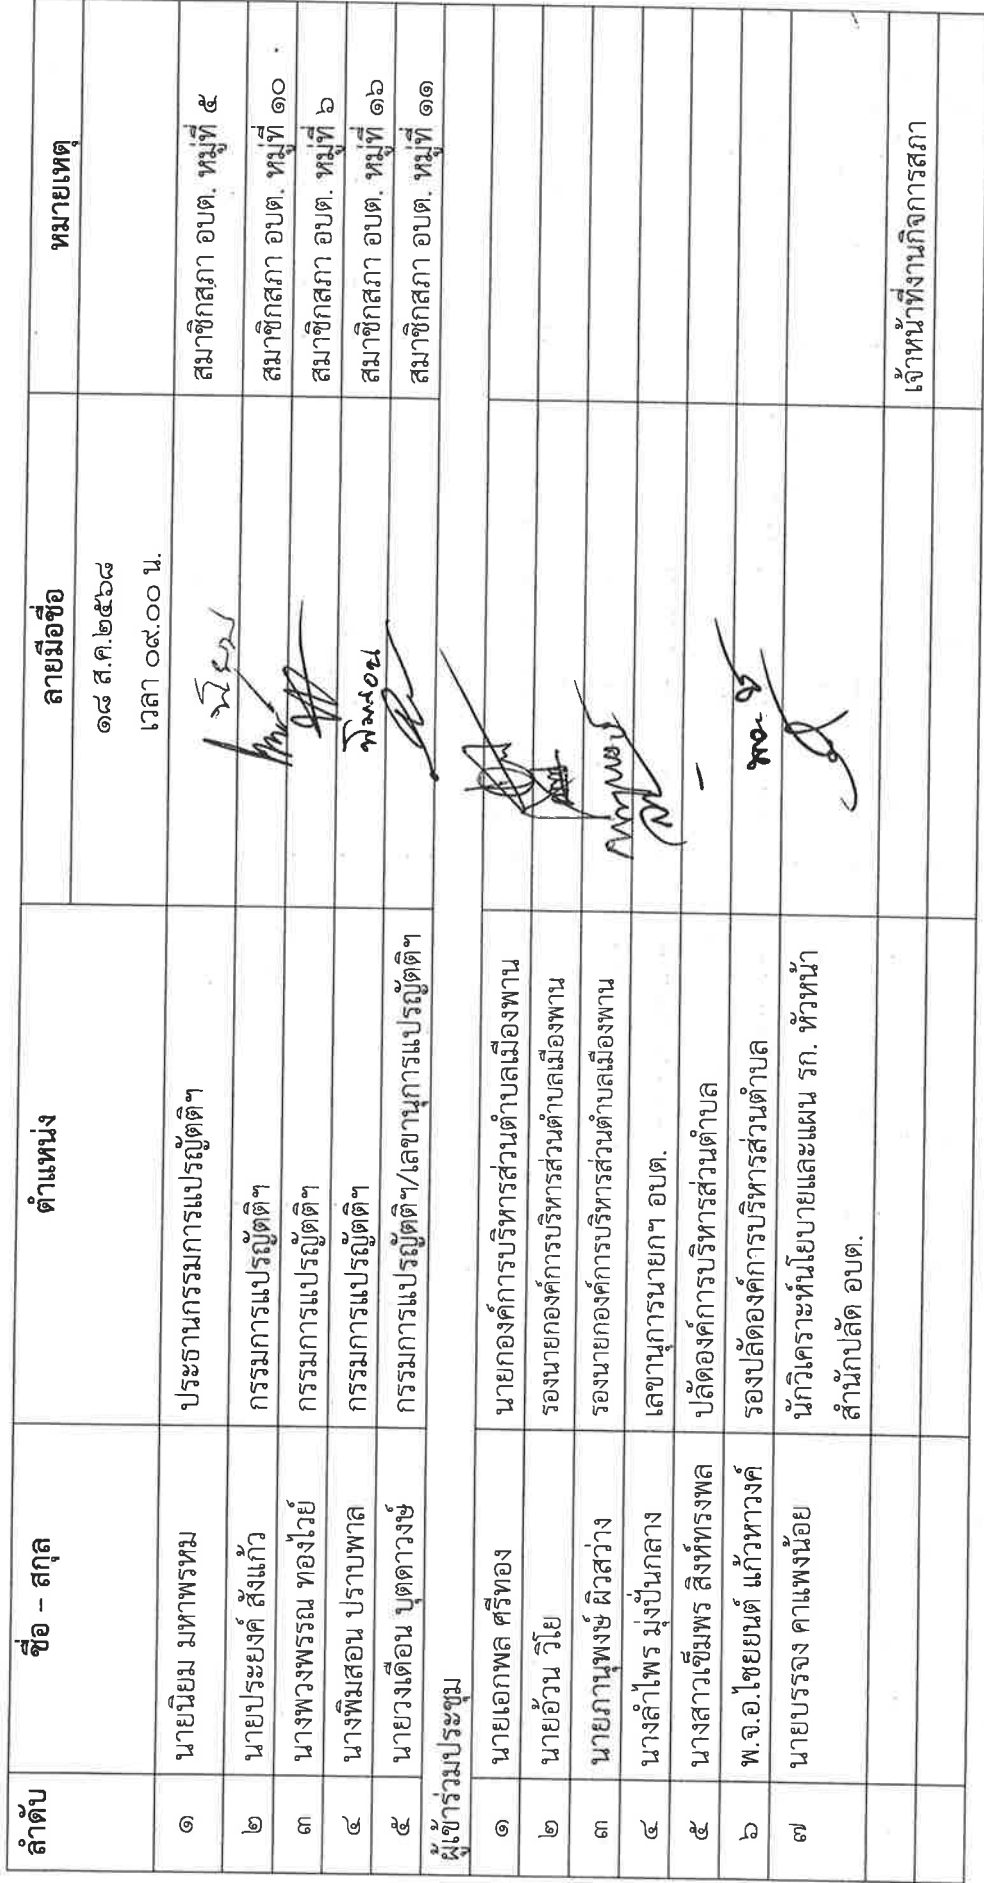 ลำดับ ชื่อ – สกุล ตำแหน่ง ลายมือชื่อ หมายเหตุ
๑๘ ส.ค.๒๕๖๘
เวลา ๐๙.๐๐ น.
๑ นายนิยม มหาพรหม ประธานกรรมการแปรญัตติฯ สมาชิกสภา อบต. หมู่ที่ ๕
๒ นายประยงค์ สังแก้ว กรรมการแปรญัตติฯ สมาชิกสภา อบต. หมู่ที่ ๑๐
๓ นางพวงพรรณ ทองไวย์ กรรมการแปรญัตติฯ สมาชิกสภา อบต. หมู่ที่ ๖
๔ นางพิมสอน ปราบพาล กรรมการแปรญัตติฯ พิมสอน สมาชิกสภา อบต. หมู่ที่ ๑๖
๕ นายวงเดือน บุตดาวงษ์ กรรมการแปรญัตติฯ/เลขานุการแปรญัตติฯ สมาชิกสภา อบต. หมู่ที่ ๑๑
ผู้เข้าร่วมประชุม
๑ นายเอกพล ศรีทอง นายกองค์การบริหารส่วนตำบลเมืองพาน
๒ นายอ้วน วิโย รองนายกองค์การบริหารส่วนตำบลเมืองพาน
๓ นายภานุพงษ์ ผิวสว่าง รองนายกองค์การบริหารส่วนตำบลเมืองพาน
๔ นางลำไพร มุ่งปั่นกลาง เลขานุการนายกฯ อบต.
๕ นางสาวเข็มพร สิงห์ทรงพล ปลัดองค์การบริหารส่วนตำบล -
๖ พ.จ.อ.ไชยยนต์ แก้วหาวงค์ รองปลัดองค์การบริหารส่วนตำบล
๗ นายบรรจง คาแพงน้อย นักวิเคราะห์นโยบายและแผน รก. หัวหน้า
สำนักปลัด อบต.
เจ้าหน้าที่งานกิจการสภา